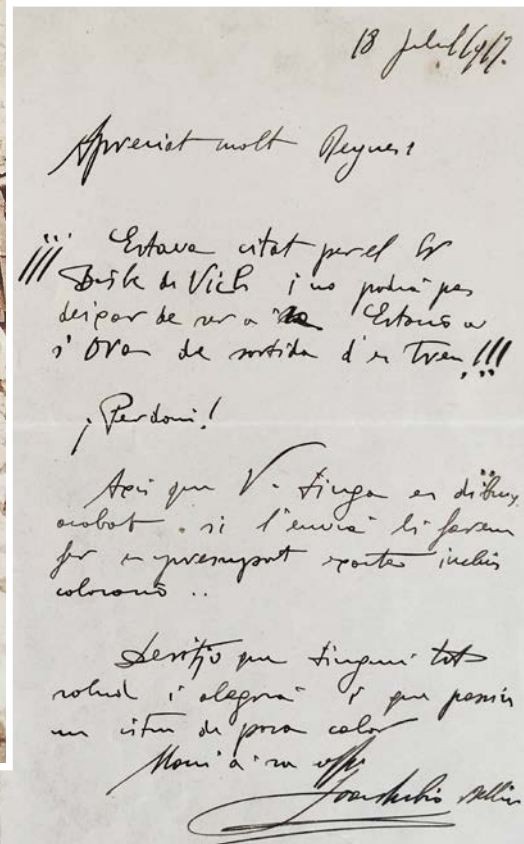 18 Juliol 1917.
Apreciat molt Reynés:
Estava citat per el Sr
Bisbe de Vich i no podía pas
deixar de ser a Estació a
s' ora de sortida d' es tren!!!
¡Perdoni!
Axí que V. tinga es dibuix
acabat. si l'envía li farem
fer es presupost exacte inclús
colocació..
Desitjo que tinguin tot
salud i alegría i que passin
un istiu de poca calor
Mani a' s
Joan Rubió Bellver